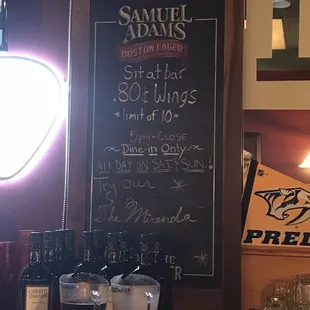 SAMUEL
ADAMS
BOSTON LAGER
Sit at bar
.80¢ Wings
*limit of 10*
5pm-Close
~Dine-in Only~
ALL DAY ON SAT & SUN.!!
Try our
The Miranda
PRED